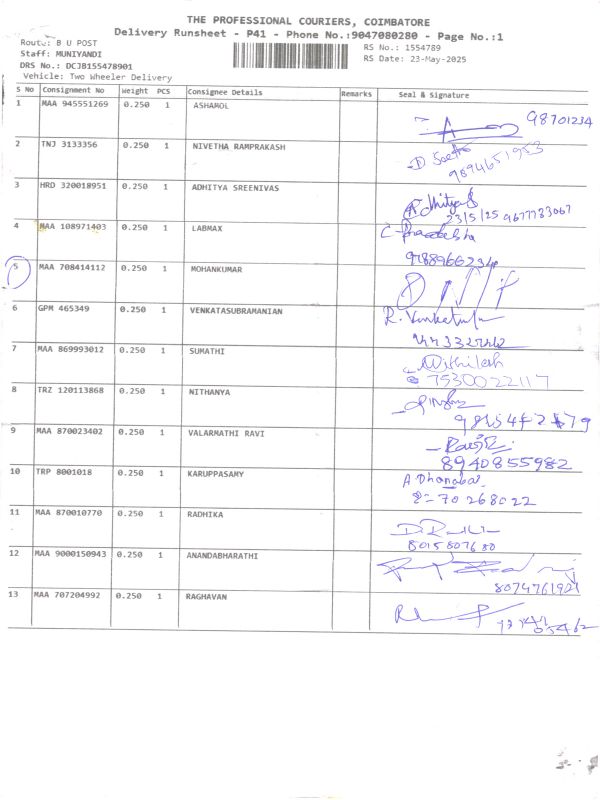 THE PROFESSIONAL COURIERS, COIMBATORE
Delivery Runsheet - P41 - Phone No.:9047080280 - Page No.:1
Route: B U POST
RS No.: 1554789
Staff: MUNIYANDI
RS Date: 23-May-2025
DRS No.: DCJB155478901
Vehicle: Two Wheeler Delivery
S No Consignment No Weight PCS Consignee Details Remarks Seal & Signature
1 MAA 945551269 0.250 1 ASHAMOL
98701234
2 TNJ 3133356 0.250 1 NIVETHA RAMPRAKASH
9894651953
3 HRD 320018951 0.250 1 ADHITYA SREENIVAS
23/5/25 9677733067
4 MAA 108971403 0.250 1 LABMAX
9788966234
5 MAA 708414112 0.250 1 MOHANKUMAR
6 GPM 465349 0.250 1 VENKATASUBRAMANIAN
R. Venkatu
7 MAA 869993012 0.250 1 SUMATHI
Mithilesh
7530022117
8 TRZ 120113868 0.250 1 NITHANYA
9 MAA 870023402 0.250 1 VALARMATHI RAVI
8940855982
10 TRP 8001018 0.250 1 KARUPPASAMY
A Dhanabal
70268022
11 MAA 870010770 0.250 1 RADHIKA
8015807680
12 MAA 9000150943 0.250 1 ANANDABHARATHI
8074761921
13 MAA 707204992 0.250 1 RAGHAVAN